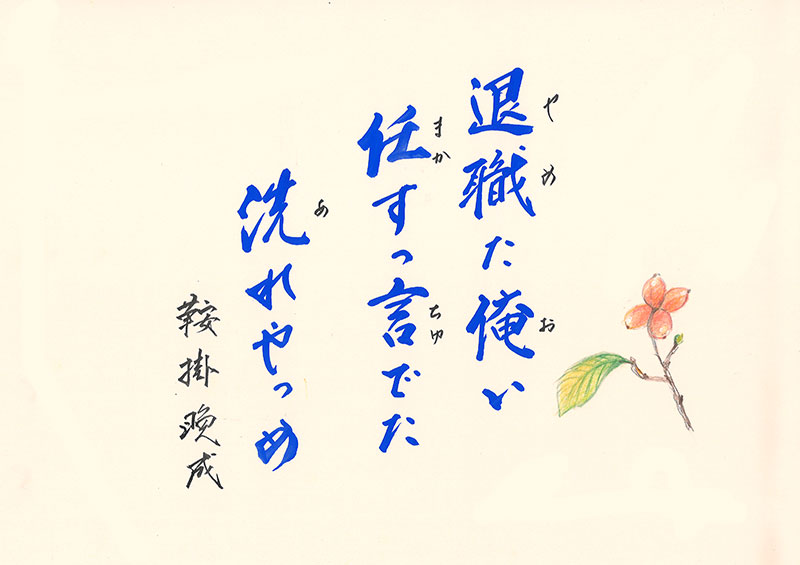 退職た俺い
やめ
お
任すっ言でた
まか
ちゆ
洗れやっめ
あ
鞍掛晩成